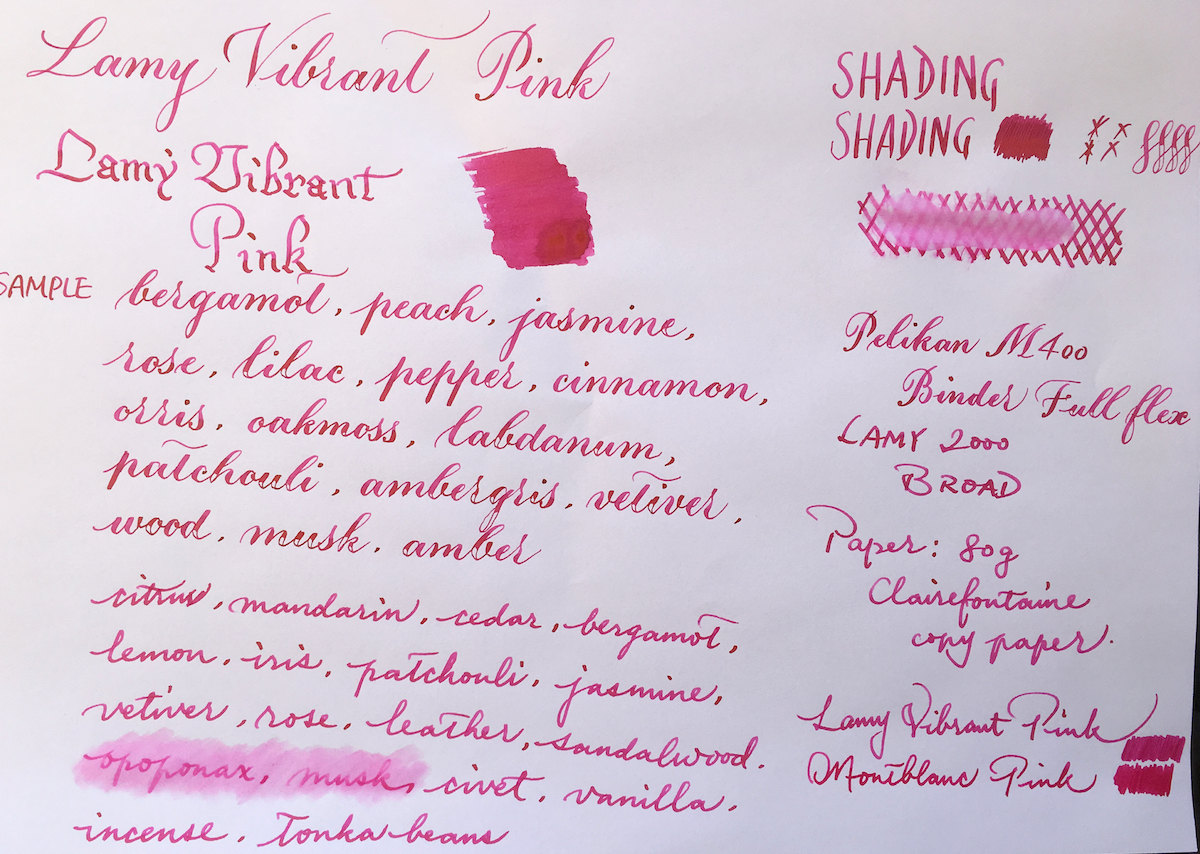 Lamy Vibrant Pink
Lamy Vibrant
Pink
SAMPLE
bergamot, peach, jasmine,
rose, lilac, pepper, cinnamon,
orris, oakmoss, labdanum,
patchouli, ambergris, vetiver,
wood, musk, amber
citrus, mandarin, cedar, bergamot,
lemon, iris, patchouli, jasmine,
vetiver, rose, leather, sandalwood.
opoponax, musk, civet, vanilla,
incense, Tonka beans
SHADING
SHADING
Pelikan M400
Binder Full flex
LAMY 2000
BROAD
Paper: 80g
Clairefontaine
copy paper.
Lamy Vibrant Pink
Montblanc Pink